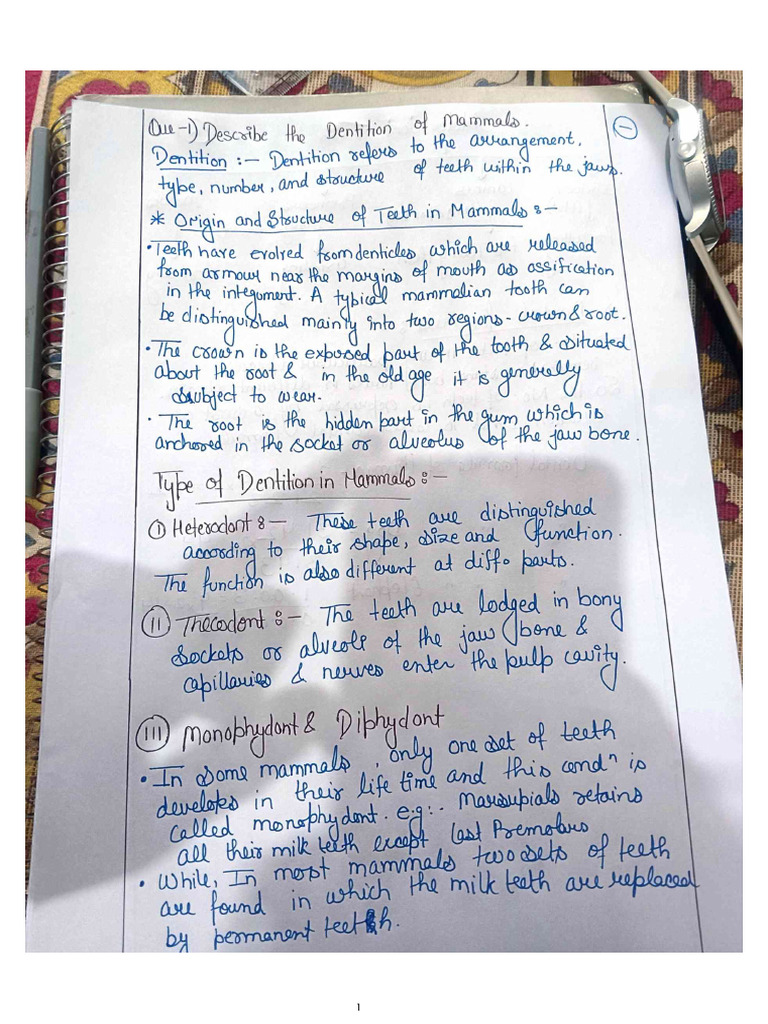 Que-1) Describe the Dentition of Mammals.
Dentition :- Dentition refers to the arrangement,
type, number, and structure of teeth within the jaws.
* Origin and Structure of Teeth in Mammals :-
• Teeth have evolved from denticles which are released
from armour near the margins of mouth as ossification
in the integument. A typical mammalian tooth can
be distinguished mainly into two regions - crown & root.
• The crown is the exposed part of the tooth & situated
about the root & in the old age it is generally
subject to wear.
• The root is the hidden part in the gum which is
anchored in the socket or alveolus of the jaw bone.
Type of Dentition in Mammals :-
(I) Heterodont :- These teeth are distinguished
according to their shape, size and function.
The function is also different at diff. parts.
(II) Thecodont :- The teeth are lodged in bony
sockets or alveoli of the jaw bone &
capillaries & nerves enter the pulp cavity.
(III) Monophydont & Diphydont
• In some mammals, only one set of teeth
develops in their life time and this condn is
called monophydont. e.g:- Marsupials retains
all their milk teeth except last Premolars
• While, In most mammals two sets of teeth
are found in which the milk teeth are replaced
by permanent teeth.
1